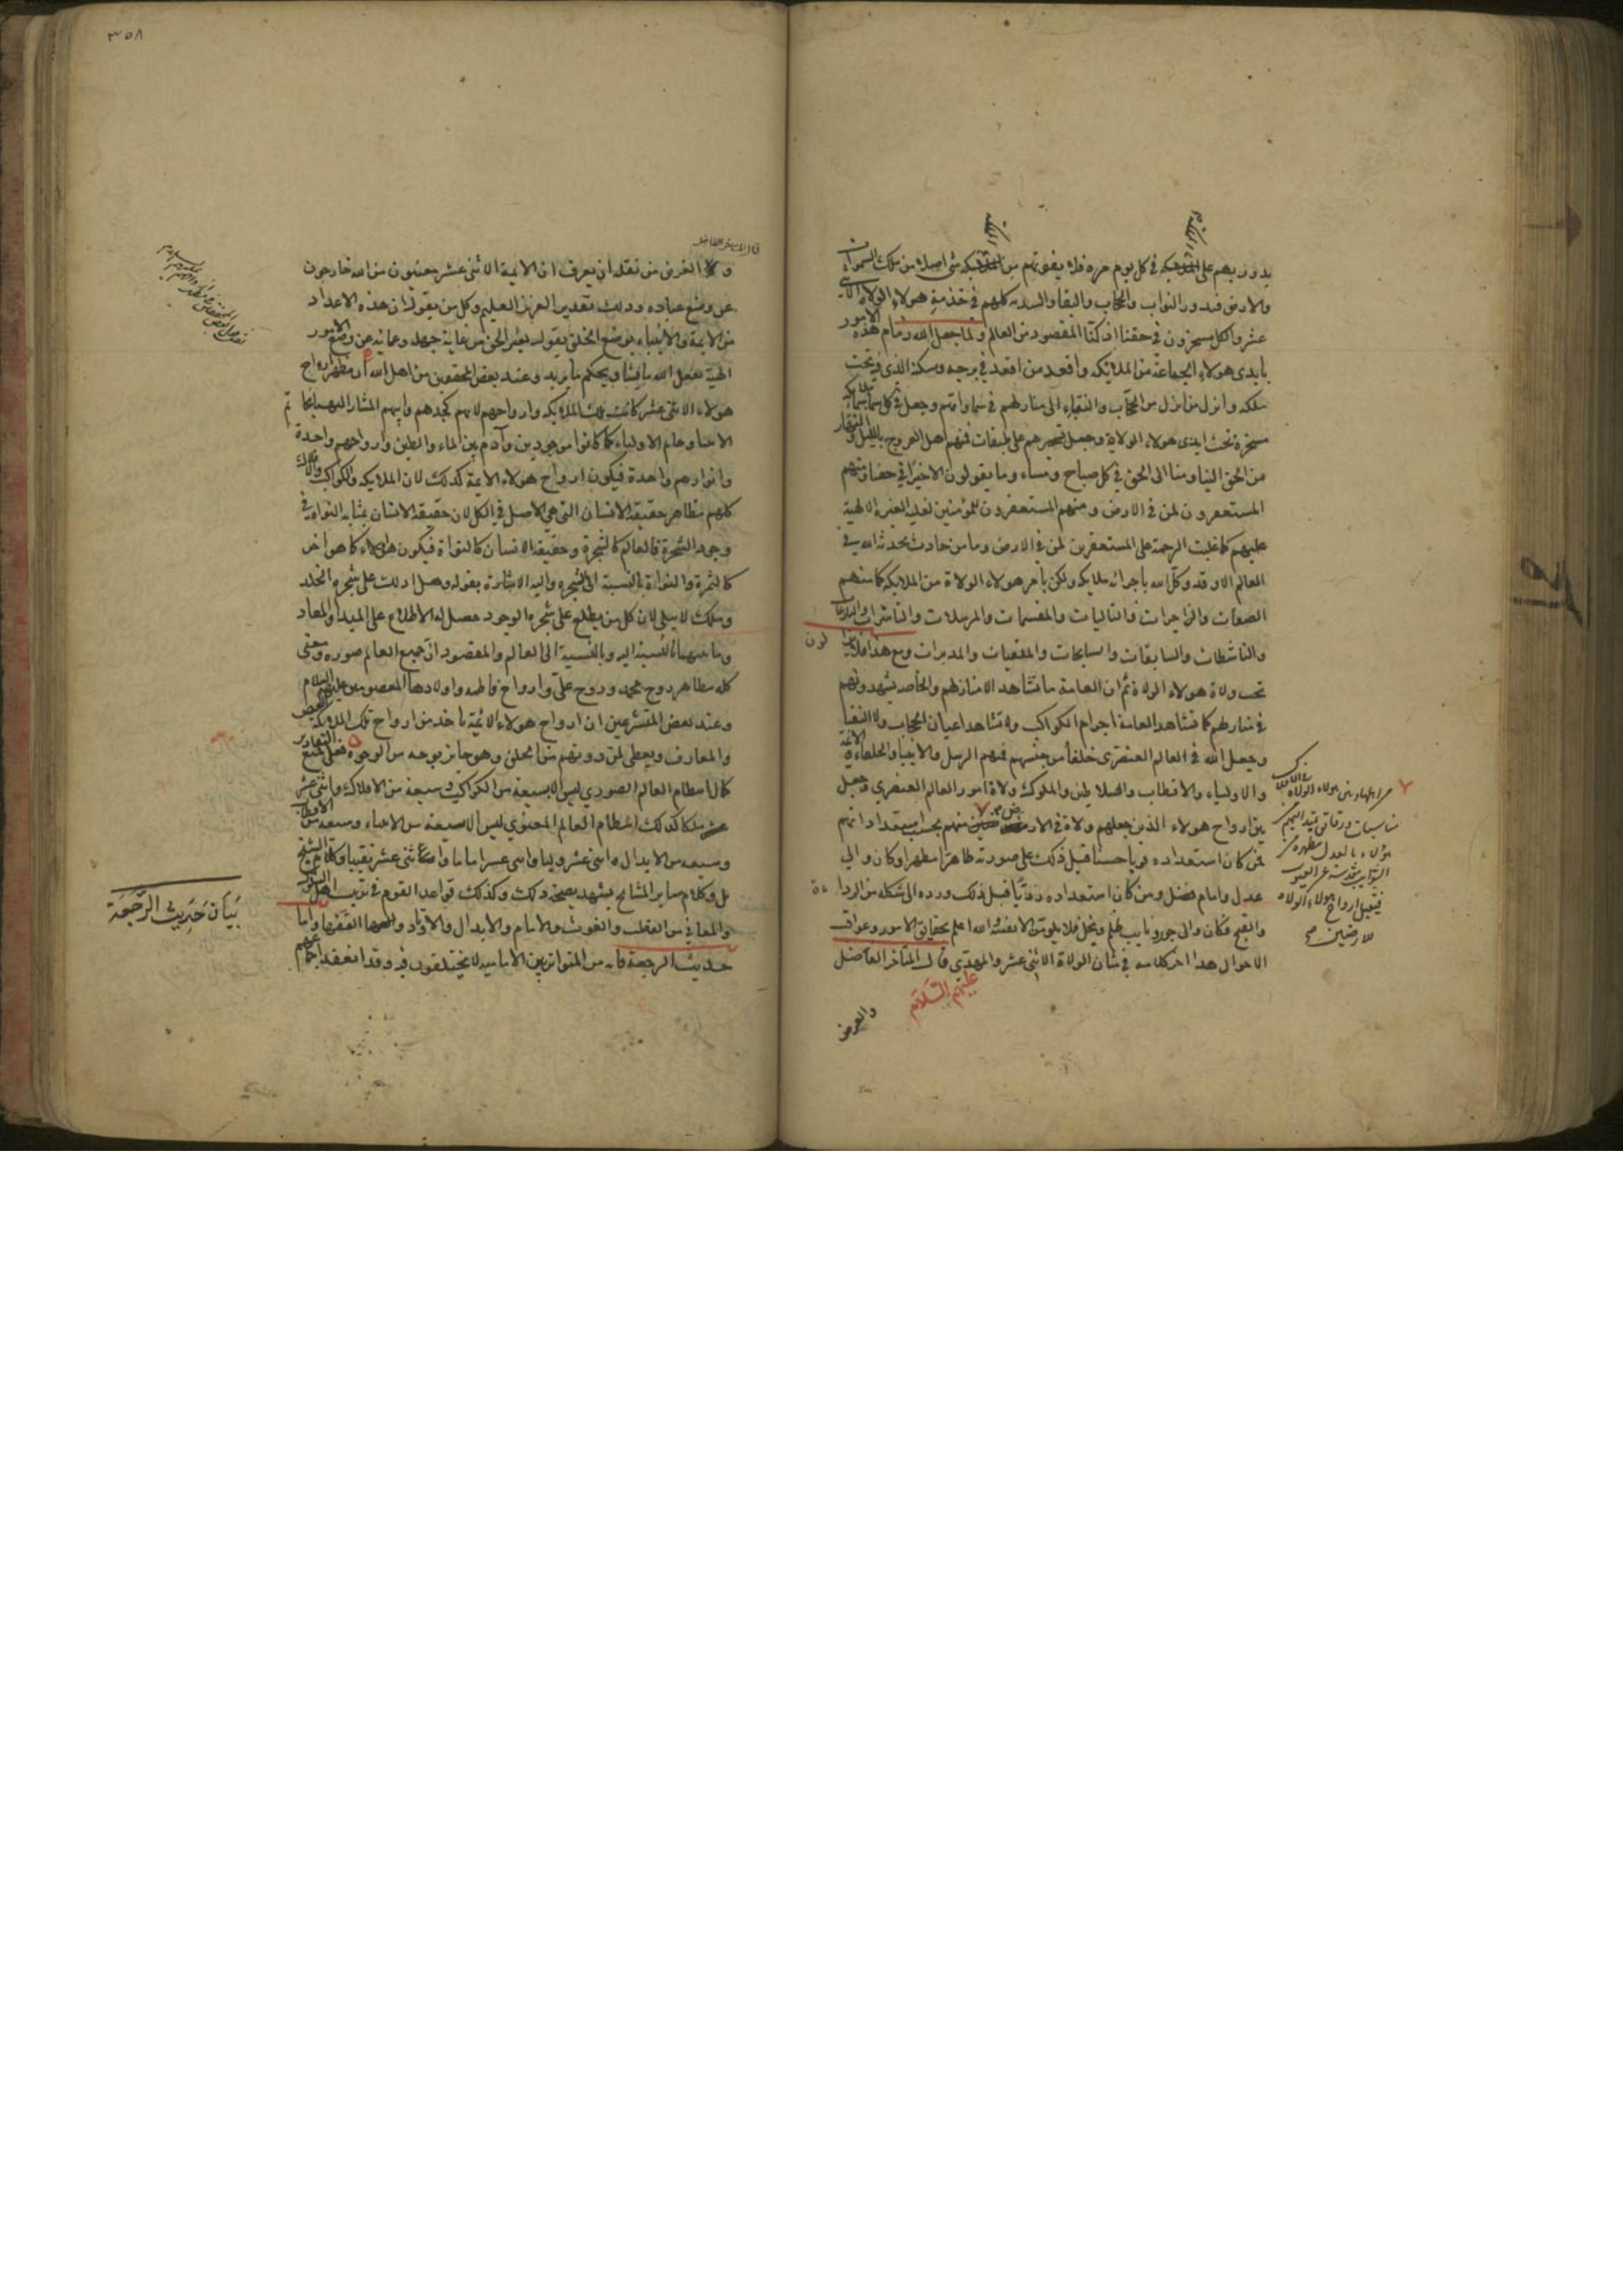 يدور بهم على المملكة في كل يوم مرة فلا يفوتهم من المملكة شي اصلا من ملك السموات
والارض فيدور النواب والحجاب والنقبا والسدنة كلهم في خدمة هولاء الولاة الاثني
عشر والكل مسخرون في حقنا اذ كنا المقصود من العالم ولما جعل الله زمام هذه الامور
بايدي هولاء الجماعة من الملايكة واقعد من اقعد في برجه ومسكنه الذي فيه تخت
ملكه وانزل من انزل من الحجاب والنقباء الى منازلهم في سماواتهم وجعل في كل سماء ملايكة
مسخرة تحت ايدي هولاء الولاة وجعل تسخيرهم على طبقات فمنهم اهل العروج بالليل والنهار
من الحق الينا ومنا الى الحق في كل صباح ومساء وما يقولون الا خيرا في حقنا ومنهم
المستغفرون لمن في الارض ومنهم المستغفرون للمؤمنين لغلبة الغيرة الالهية
عليهم كما غلبت الرحمة على المستغفرين لمن في الارض وما من حادث يحدثه الله في
العالم الا وقد وكل الله باجرائه ملايكة ولكن بامر هولاء الولاة من الملايكة كما منهم
الصافات والزاجرات والتاليات والمقسمات والمرسلات والناشرات والنازعات
والناشطات والسابقات والسابحات والملقيات والمدبرات ومع هذا فلا يزالون
تحت ولاة هولاء الولاة ثم ان العامة ما تشاهد الا منازلهم والخاصه يشهدونهم
في منازلهم كما تشاهد العامة اجرام الكواكب ولا تشاهد اعيان الحجاب ولا النقبا
وجعل الله في العالم العنصري خلقا من جنسهم فمنهم الرسل والانبيا والخلفاء والائمة
والاولياء والاقطاب والسلاطين والملوك وولاة امور العالم العنصري وجعل
بين ارواح هولاء الذين جعلهم ولاة في الارض منهم بحسب استعداداتهم
فمن كان استعداده قويا حسنا قبل ذلك على صورته طاهرا مطهرا وكان والي
عدل وامام فضل ومن كان استعداده رديا قبل ذلك ورده الى شكله من الرداءة
والقبح فكان والي جور ونايب ظلم وبخل فلا يلومن الا نفسه والله اعلم بحقايق الامور وعواقب
الاحوال هذا اخر كلامه في شان الولاة الاثني عشر والمهدي قال المتاخر الفاضل
عليهم السلام
والغرض
٣٥٨
قال المتاخر الفاضل
والغرض من نقله ان يعرف ان الايمة الاثني عشر معينون من الله خارجون
عن وضع عباده وذلك تقدير العزيز العليم وكل من يقول ان هذه الاعداد
من الايمة والانبياء بوضع الخلق يقول بغير الحق من غاية جهله وعمائه عن وضع الامور
الهية يفعل الله ما يشا ويحكم ما يريد وعند بعض المحققين من اهل الله ان مظهر ارواح
هولاء الاثني عشر كانت تلك الملايكة وارواحهم لانهم كجدهم وابيهم المشار اليهما بخاتم
الانبيا وخاتم الاولياء كما كانوا موجودين وآدم بين الماء والطين وارواحهم واحدة
وانوارهم واحدة فيكون ارواح هولاء الايمة كذلك لان الملايكة والكواكب والافلاك
كلهم مظاهر حقيقة الانسان التي هي الاصل في الكل لان حقيقة الانسان بمثابه النواة في
وجود الشجرة فالعالم كالشجرة وحقيقة الانسان كالنواة فيكون هو الاول كما هو اخر
كالثمرة والنواة بالنسبة الى الشجرة واليه الاشارة بقوله هل ادلك على شجرة الخلد
وملك لا يبلى لان كل من يطلع على شجرة الوجود حصل له الاطلاع على المبدا والمعاد
وما بينهما بالنسبة اليه وبالنسبة الى العالم والمقصود ان جميع العالم صورة ومعنى
كله مظاهر روح محمد وروح علي وارواح فاطمة واولادها المعصومين عليهم السلام
وعند بعض المتشرعين ان ارواح هولاء الائمة ياخذ من ارواح تلك الملايكة الفيض
والمعارف ويعطي لمن دونهم من الخلق وهو جايز بوجه من الوجوه فعلى جميع التقادير
كما ان نظام العالم الصوري ليس الا بسبعة من الكواكب وسبعة من الافلاك واثني عشر
ملكا كذلك انتظام العالم المعنوي ليس الا بسبعة من الانبياء وسبعة من الاقطاب
وسبعة من الابدال واثني عشر وليا واثني عشر اماما واثني عشر نقيبا وكلام الشيخ
بل وكلام ساير المشايخ يشهد بصحة ذلك وكذلك قواعد القوم في ترتيب اهل السلوك
والمعاني من القطب والغوث والامام والابدال والاوتاد واما
حديث الرجعة فانه من المتواتر بين الامامية لا يختلفون فيه وقد انعقد اجماعهم
بيان حديث الرجعة